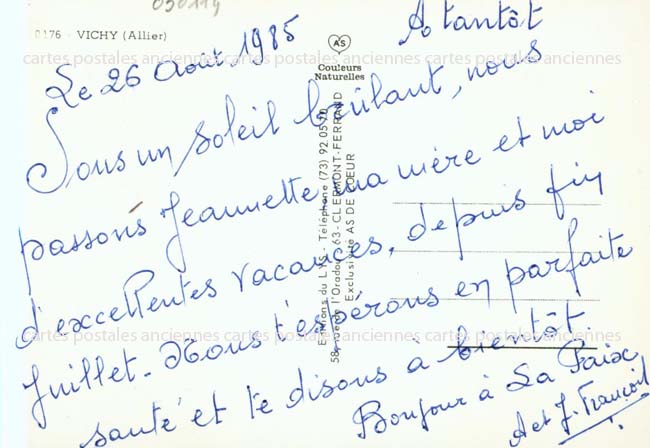 030114
0176 - VICHY (Allier)
AS
Couleurs
Naturelles
cartes postales anciennes cartes postales anciennes cartes postales anciennes cartes postales anciennes
A tantôt
Le 26 Août 1985
Sous un soleil brûlant, nous
passons Jeannette, ma mère et moi
d'excellentes vacances, depuis fin
Juillet. Nous t'espérons en parfaite
santé et te disons à bientôt
Bonjour à La Paix
A et J. François
Téléphone (73) 92.05
63 - CLERMONT-FERRAND
Exclusivité AS DE COEUR
cartes postales anciennes cartes postales anciennes cartes postales anciennes cartes postales anciennes